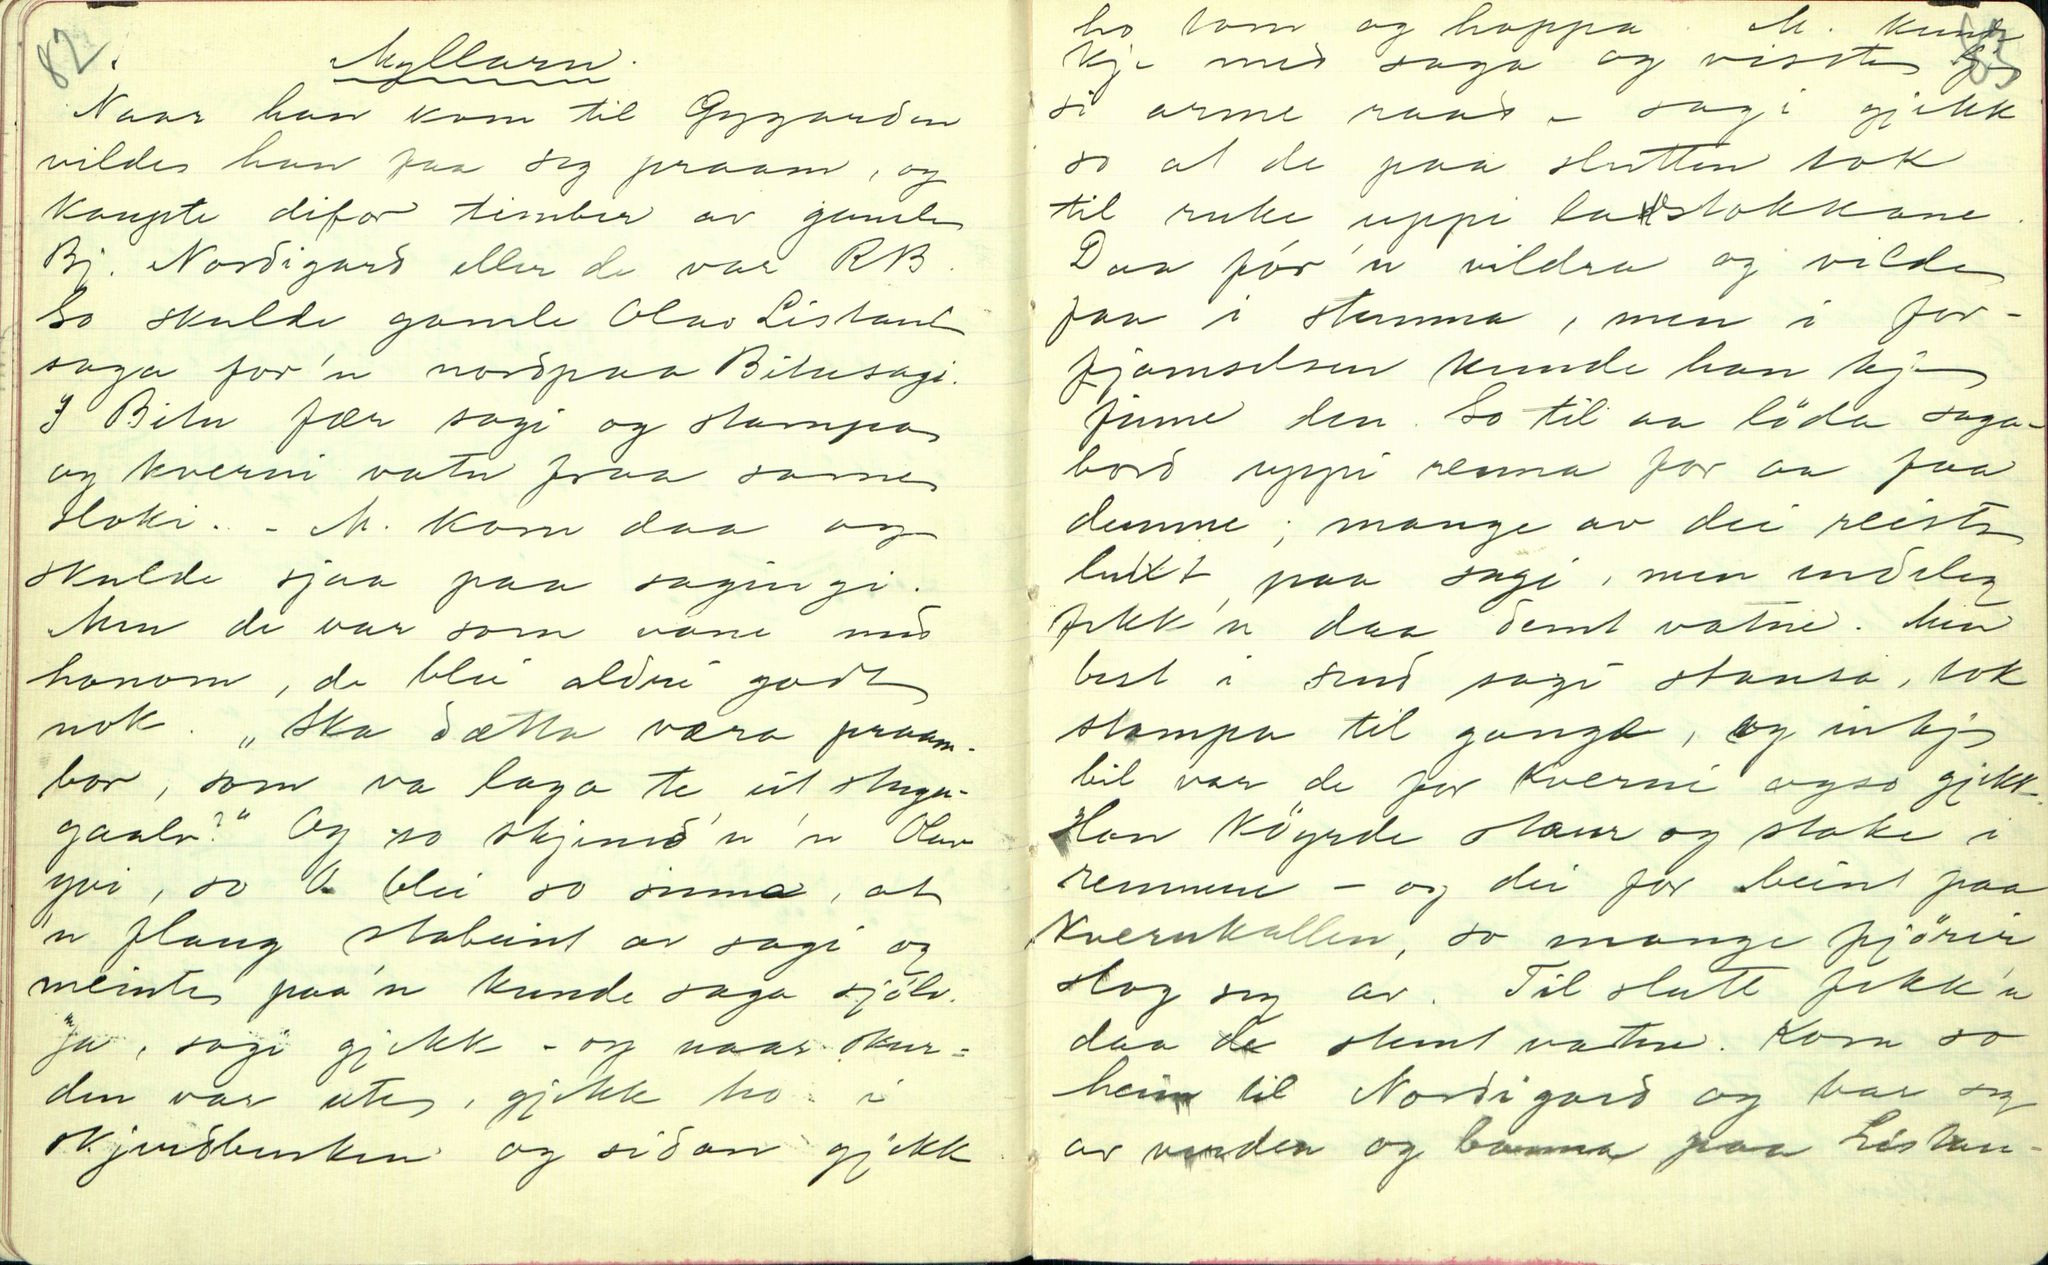 82.
Myllarn.
Naar han kom til Gygarden
vilde han faa seg praam, og
kaupte difor timber av gamle
Bj. Nordigard eller de var RB.
So skulde gamle Olav Listaul
saga for'n nordpaa Bitusagi.
I Bitu fær sagi og stampa
og kverni vatn fraa same
stoki. - M. kom daa og
skulde sjaa paa sagingi.
Men de var som vane med
honom, de blei aldri godt
nok. "Ska dætta væra praam-
bor, som va laga te eit stugu-
gaalv?" Og so skjend'n 'n Olav
yvi, so O blei so sinna, at
'n flaug stabeint av sagi og
meinte paa'n kunde saga sjölv.
Ja, sagi gjekk - og naar skur-
den var ute, gjekk ho i
skjerdbenken og sidan gjekk
83
ho tom og hoppa. M. kunde
kje med saga og visste kje
si arme raad - sagi gjekk
so at de paa slutten tok
til ruke uppi ladstokkane.
Daa fór'n vildra og vilde
faa i stemma, men i for-
fjamselsen kunde han kje
finne den. So til aa löda saga-
bord uppi renna for aa faa
demme; mange av dei reiste
lukt paa sagi, men endeleg
fekk'n daa demt vatne. Men
best i send sagi stansa, tok
stampa til gange, og inkje
bil var de for kverni ogso gjekk.
Han köyrde staur og stake i
rennune - og dei for beint paa
kvernkallen, so mange fjörir
slog seg av. Til slutt fekk'n
daa de stemt vatne. Kom so
heim til Nordigard og bar seg
ar vonden og banna paa Listau-